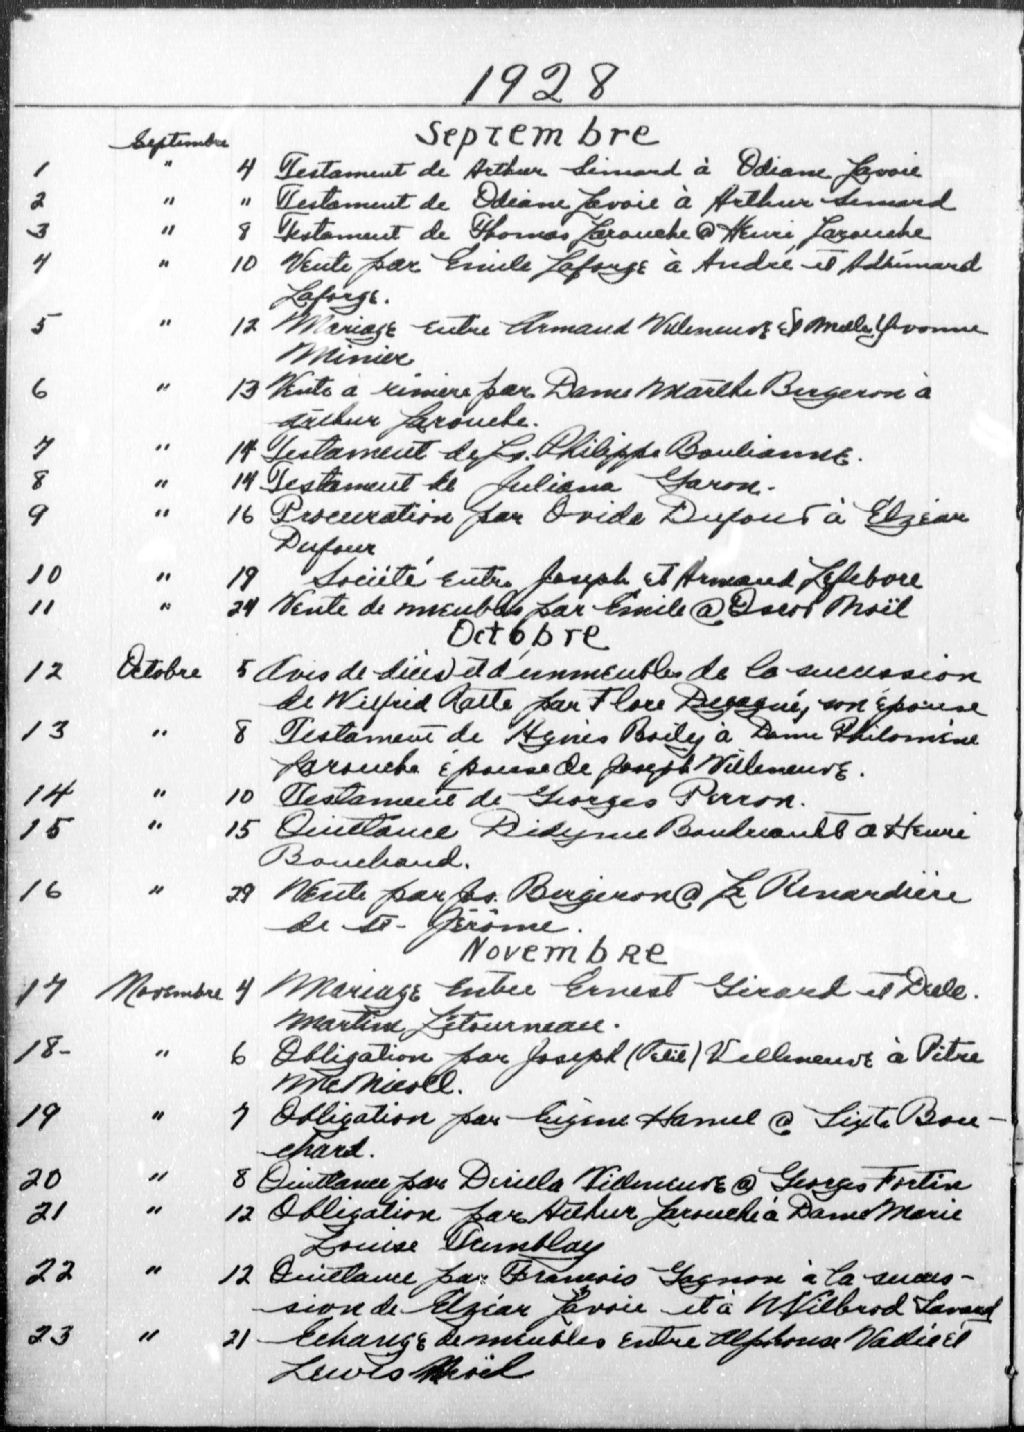 1928
Septembre
Septembre
1 " 4 Testament de Arthur Simard à Odiane Lavoie
2 " " Testament de Odiane Lavoie à Arthur Simard
3 " 8 Testament de Thomas Larouche @ Henri Larouche
4 " 10 Vente par Emile Laforge à André et Adhémard
Laforge.
5 " 12 Mariage entre Armand Villeneuve Et Melle Yvonne
Minier
6 " 13 Vente à réméré par Dame Marthe Bergeron à
Arthur Larouche.
7 " 14 Testament de Ls. Philippe Boulianne.
8 " 14 Testament de Juliana Garon.
9 " 16 Procuration par Ovide Dufour à Elzéar
Dufour
10 " 19 Société entre Joseph et Armand Lefebvre
11 " 24 Vente de meubles par Emile @ Oscar Noël
Octobre
12 Octobre 5 Avis de décès et d'immeubles de la succession
de Wilfrid Ratté par Flore Degagné, son épouse
13 " 8 Testament de Agnès Boily à Dame Philomène
Larouche épouse de Joseph Villeneuve.
14 " 10 Testament de Georges Perron.
15 " 15 Quittance Didyme Boudreault à Henri
Bouchard.
16 " 29 Vente par Jos. Bergeron @ La Renardière
de St-Jérôme.
Novembre
17 Novembre 4 Mariage entre Ernest Girard et Delle.
Martine Létourneau.
18- " 6 Obligation par Joseph (Petit) Villeneuve à Pitre
McNicoll.
19 " 7 Obligation par Eugène Hamel @ Sixte Bou-
chard.
20 " 8 Quittance par Villeneuve @ Georges Fortin
21 " 12 Obligation par Arthur Larouche à Dame Marie
Louise Tremblay
22 " 12 Quittance par François Gagnon à la succes-
sion de Elzéar Lavoie et à Wilbrod Savard
23 " 21 Echange de meubles entre Alphonse Et
Lewis Noël